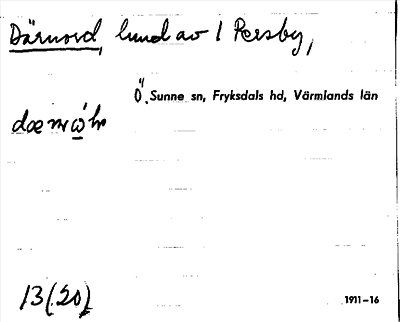 Därnord, lund av 1 Persby,
Ö. Sunne sn, Fryksdals hd, Värmlands län
13(20)
1911-16